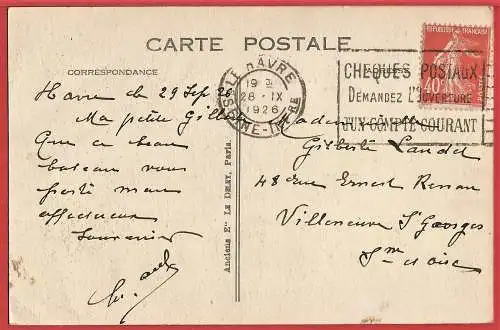 CARTE POSTALE
CORRESPONDANCE
Havre du 29 Sep 26
Ma petite
Que ce beau
bateau vous
porte mon
affectueux
souvenir
Anciens Ets LE DELEY, Paris.
LE HAVRE
19
28 IX
1926
SEINE-INFRE
CHEQUES POSTAUX
DEMANDEZ L'OUVERTURE
D'UN COMPTE COURANT
REPUBLIQUE FRANÇAISE
40
Mademoiselle
Gilberte Laudet
48 rue Ernest Renan
Villeneuve St Georges
S. et Oise